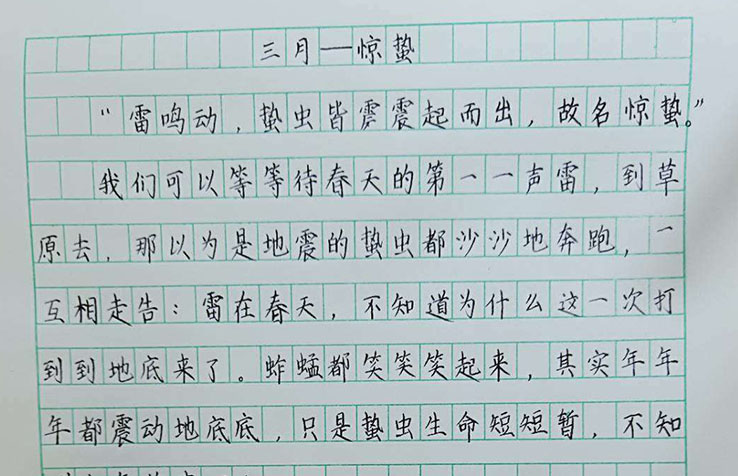 三月—惊蛰
“雷鸣动，蛰虫皆震震起而出，故名惊蛰。”
我们可以等等待春天的第一一声雷，到草
原去，那以为是地震的蛰虫都沙沙地奔跑，一
互相走告：雷在春天，不知道为什么这一次打
到到地底来了。蚱蜢都笑笑笑起来，其实年年
年都震动地底底，只是蛰虫生命短短暂，不知